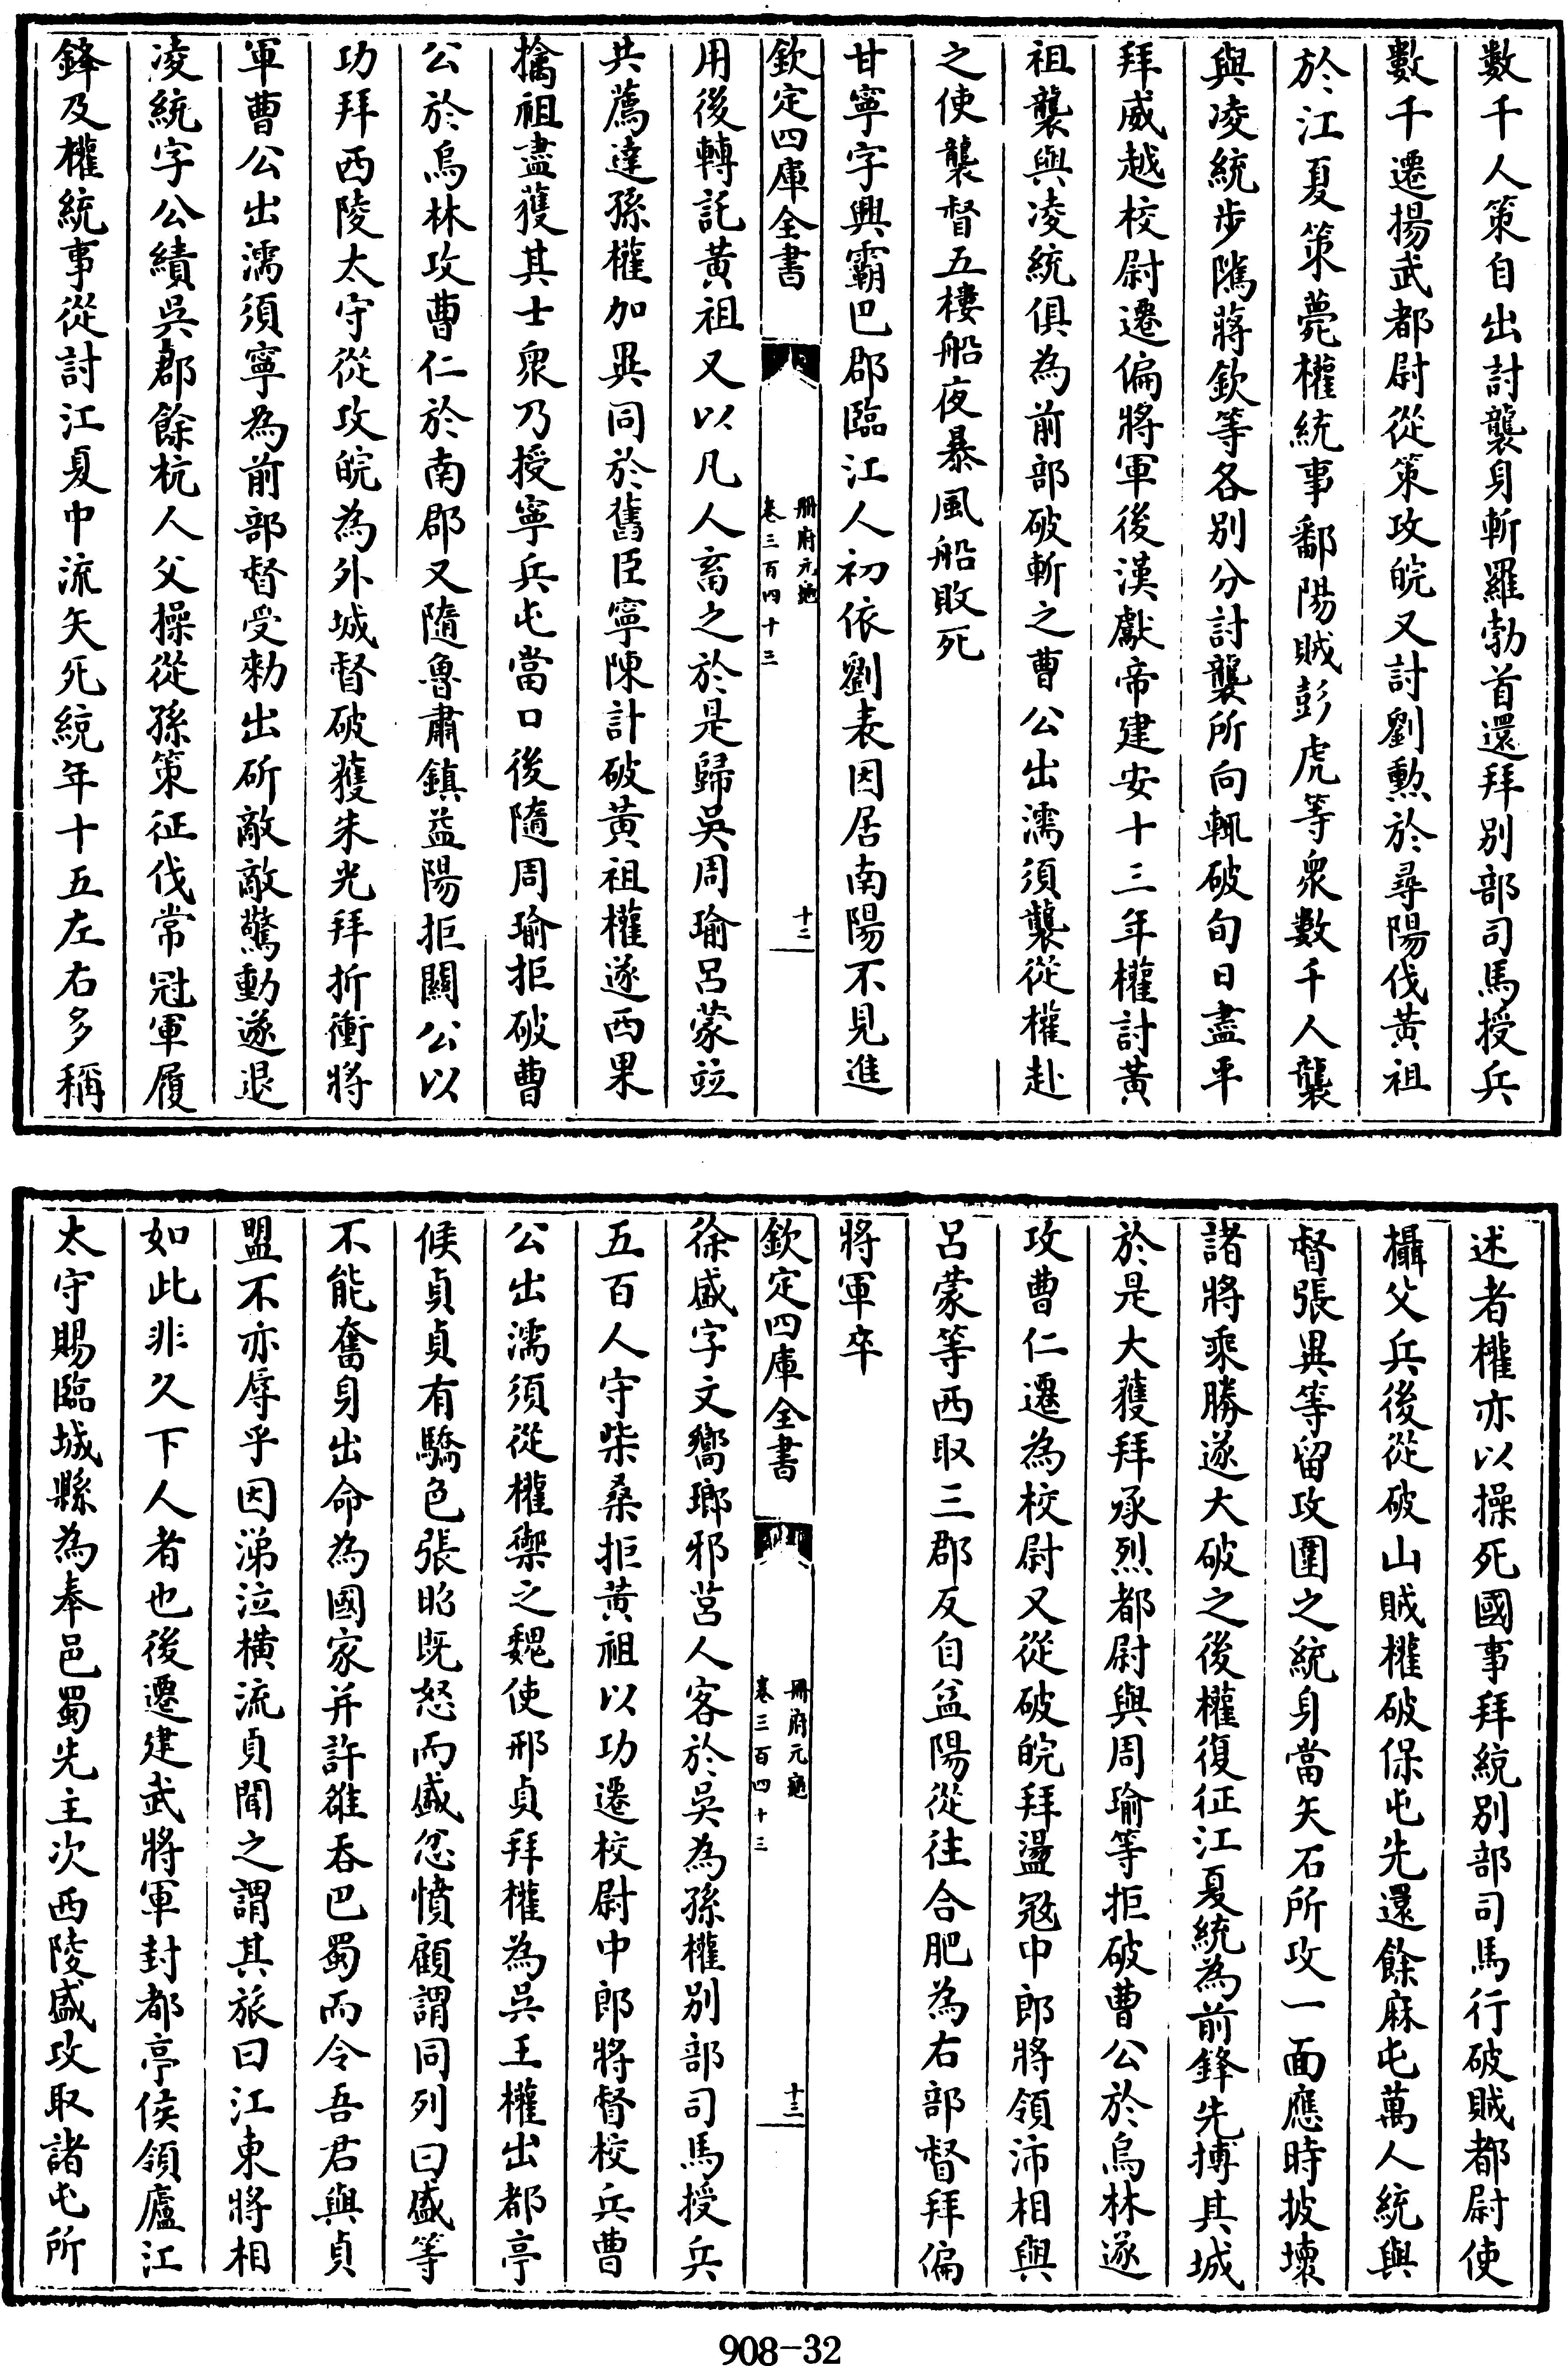 數千人策自出討襲身斬羅勃首還拜别部司馬授兵
數千遷揚武都尉從策攻皖又討劉勲於尋陽伐黄祖
於江夏策薨權統事鄱陽賊彭虎等衆數千人襲
與凌統步隲蔣欽等各别分討襲所向輒破旬日盡平
拜威越校尉遷偏將軍後漢獻帝建安十三年權討黄
祖襲與凌統俱為前部破斬之曹公出濡須襲從權赴
之使襲督五樓船夜暴風船敗死
甘寧字興霸巴郡臨江人初依劉表因居南陽不見進
欽定四庫全書
册府元龜
卷三百四十三
十二
用後轉託黄祖又以凡人畜之於是歸吳周瑜呂蒙竝
共薦達孫權加異同於舊臣寧陳計破黄祖權遂西果
擒祖盡獲其士衆乃授寧兵屯當口後隨周瑜拒破曹
公於烏林攻曹仁於南郡又隨魯肅鎮益陽拒關公以
功拜西陵太守從攻皖為外城督破獲朱光拜折衝將
軍曹公出濡須寧為前部督受勑出斫敵敵驚動遂退
凌統字公績吳郡餘杭人父操從孫策征伐常冠軍履
鋒及權統事從討江夏中流矢死統年十五左右多稱
述者權亦以操死國事拜統别部司馬行破賊都尉使
攝父兵後從破山賊權破保屯先還餘麻屯萬人統與
督張異等留攻圍之統身當矢石所攻一面應時披壞
諸將乘勝遂大破之後權復征江夏統為前鋒先搏其城
於是大獲拜承烈都尉與周瑜等拒破曹公於烏林遂
攻曹仁遷為校尉又從破皖拜盪冦中郎將領沛相與
呂蒙等西取三郡反自益陽從往合肥為右部督拜偏
將軍卒
欽定四庫全書
册府元龜
卷三百四十三
十三
徐盛字文嚮瑯邪莒人客於吳為孫權别部司馬授兵
五百人守柴桑拒黄祖以功遷校尉中郎將督校兵曹
公出濡須從權禦之魏使邢貞拜權為吳王權出都亭
候貞貞有驕色張昭既怒而盛忿憤顧謂同列曰盛等
不能奮身出命為國家并許雒吞巴蜀而令吾君與貞
盟不亦辱乎因涕泣橫流貞聞之謂其旅曰江東將相
如此非久下人者也後遷建武將軍封都亭侯領廬江
太守賜臨城縣為奉邑蜀先主次西陵盛攻取諸屯所
908-32